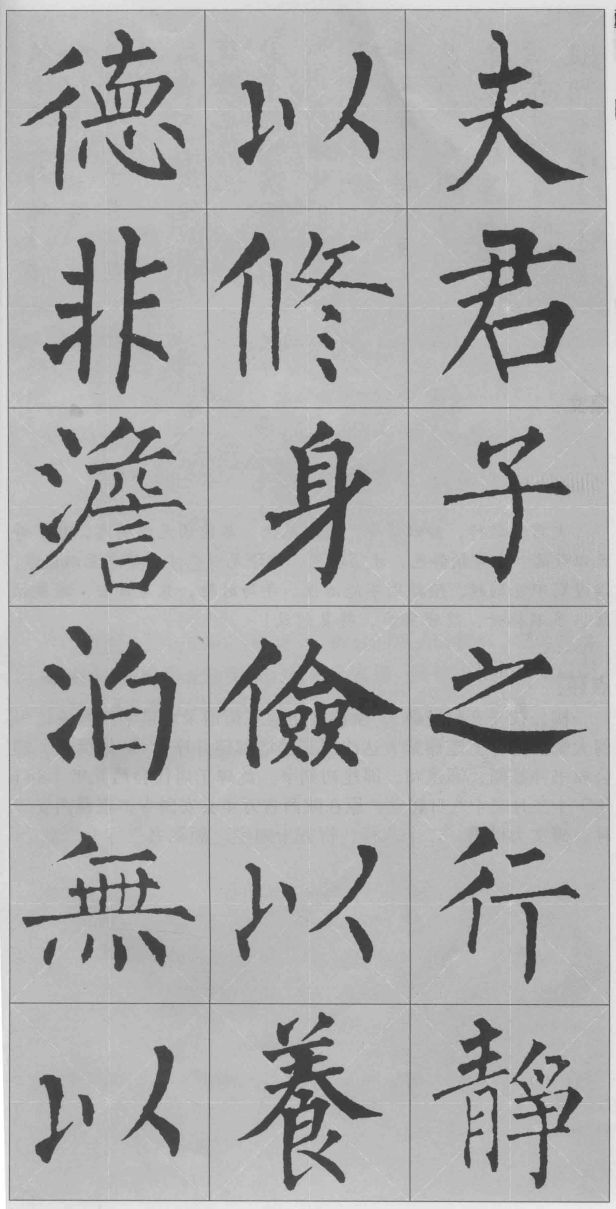 夫君子之行靜
以修身儉以養
德非澹泊無以